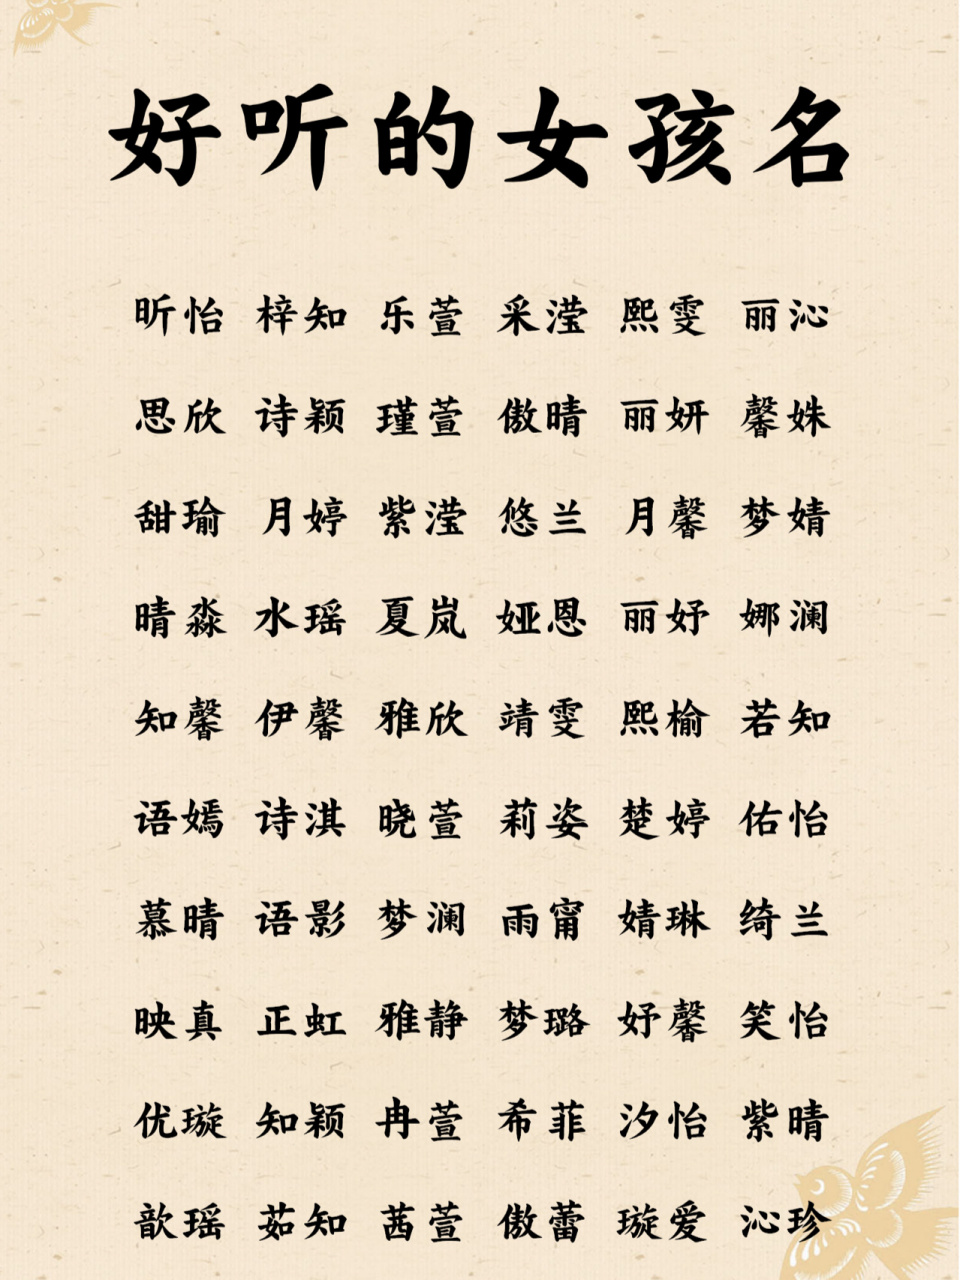 好听的女孩名
昕怡 梓知 乐萱 采滢 熙雯 丽沁
思欣 诗颖 瑾萱 傲晴 丽妍 馨姝
甜瑜 月婷 紫滢 悠兰 月馨 梦婧
晴淼 水瑶 夏岚 娅恩 丽妤 娜澜
知馨 伊馨 雅欣 靖雯 熙榆 若知
语嫣 诗淇 晓萱 莉姿 楚婷 佑怡
慕晴 语影 梦澜 雨甯 婧琳 绮兰
映真 正虹 雅静 梦璐 妤馨 笑怡
优璇 知颖 冉萱 希菲 汐怡 紫晴
歆瑶 茹知 茜萱 傲蕾 璇爱 沁珍